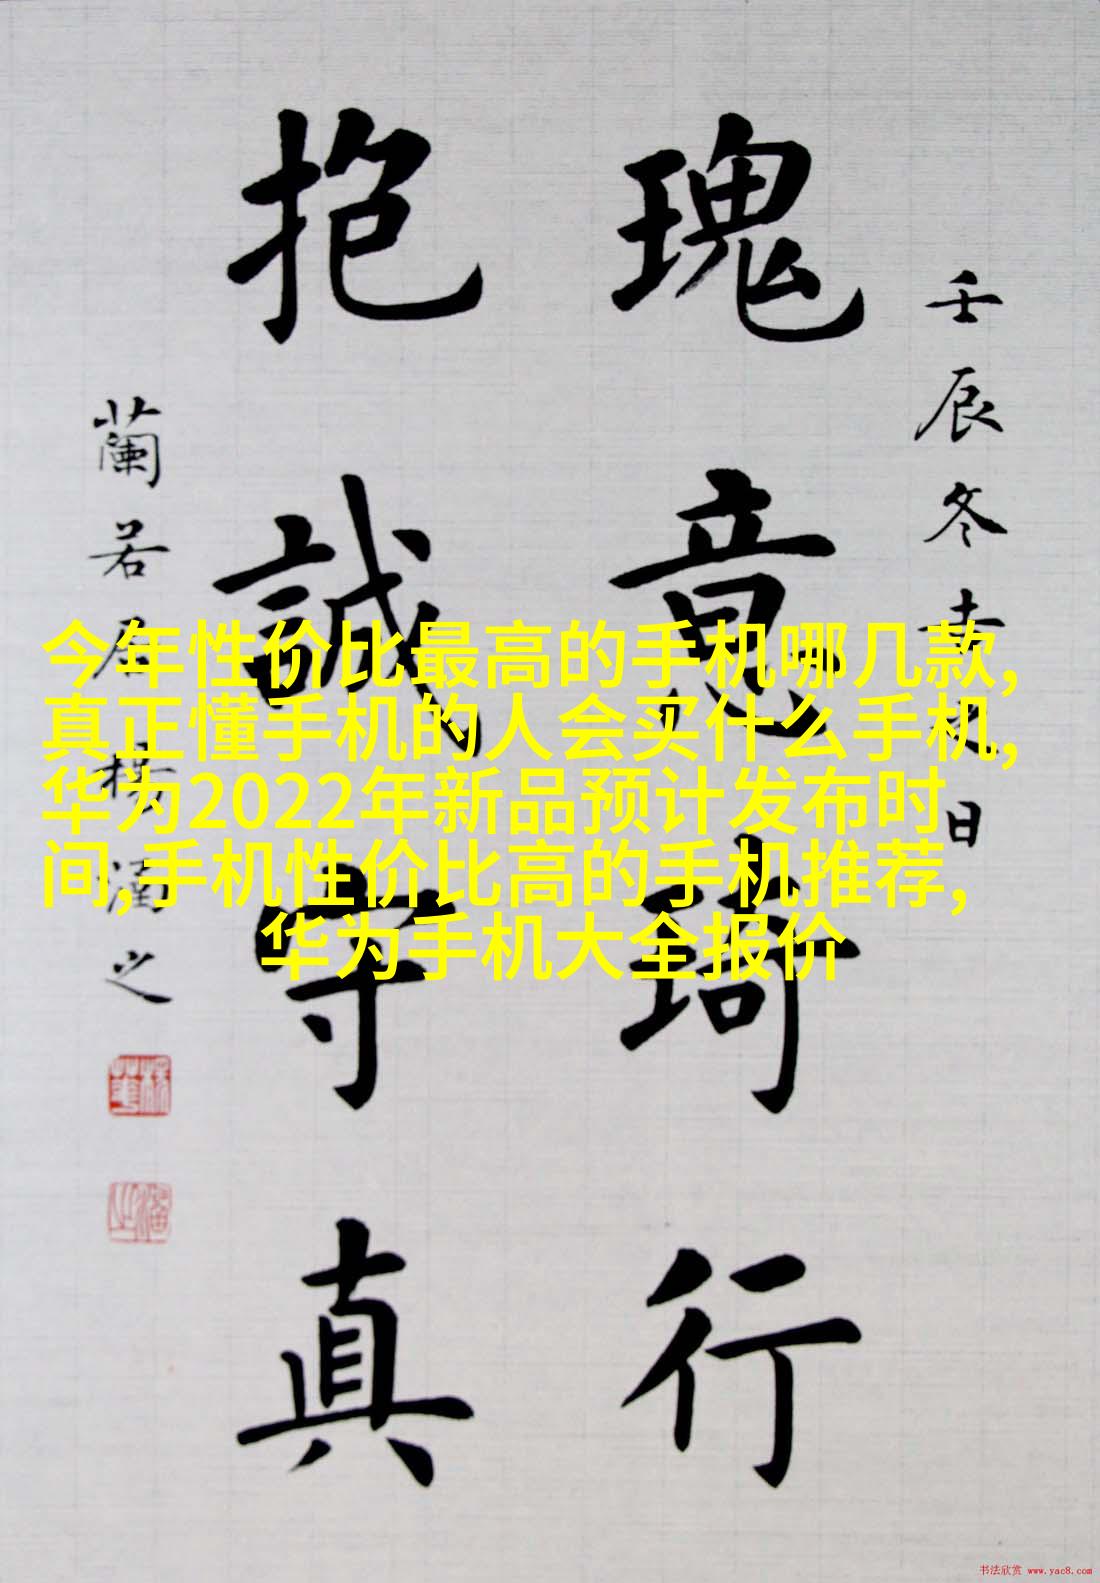 壬辰冬吉之日
瑰意琦行
抱誠守真
蘭若居楊潘之
今年性价比最高的手机哪几款,
真正懂手机的人会买什么手机,
华为2022年新品预计发布时
间,手机性价比高的手机推荐,
华为手机大全报价
书法欣赏 www.yac8.com